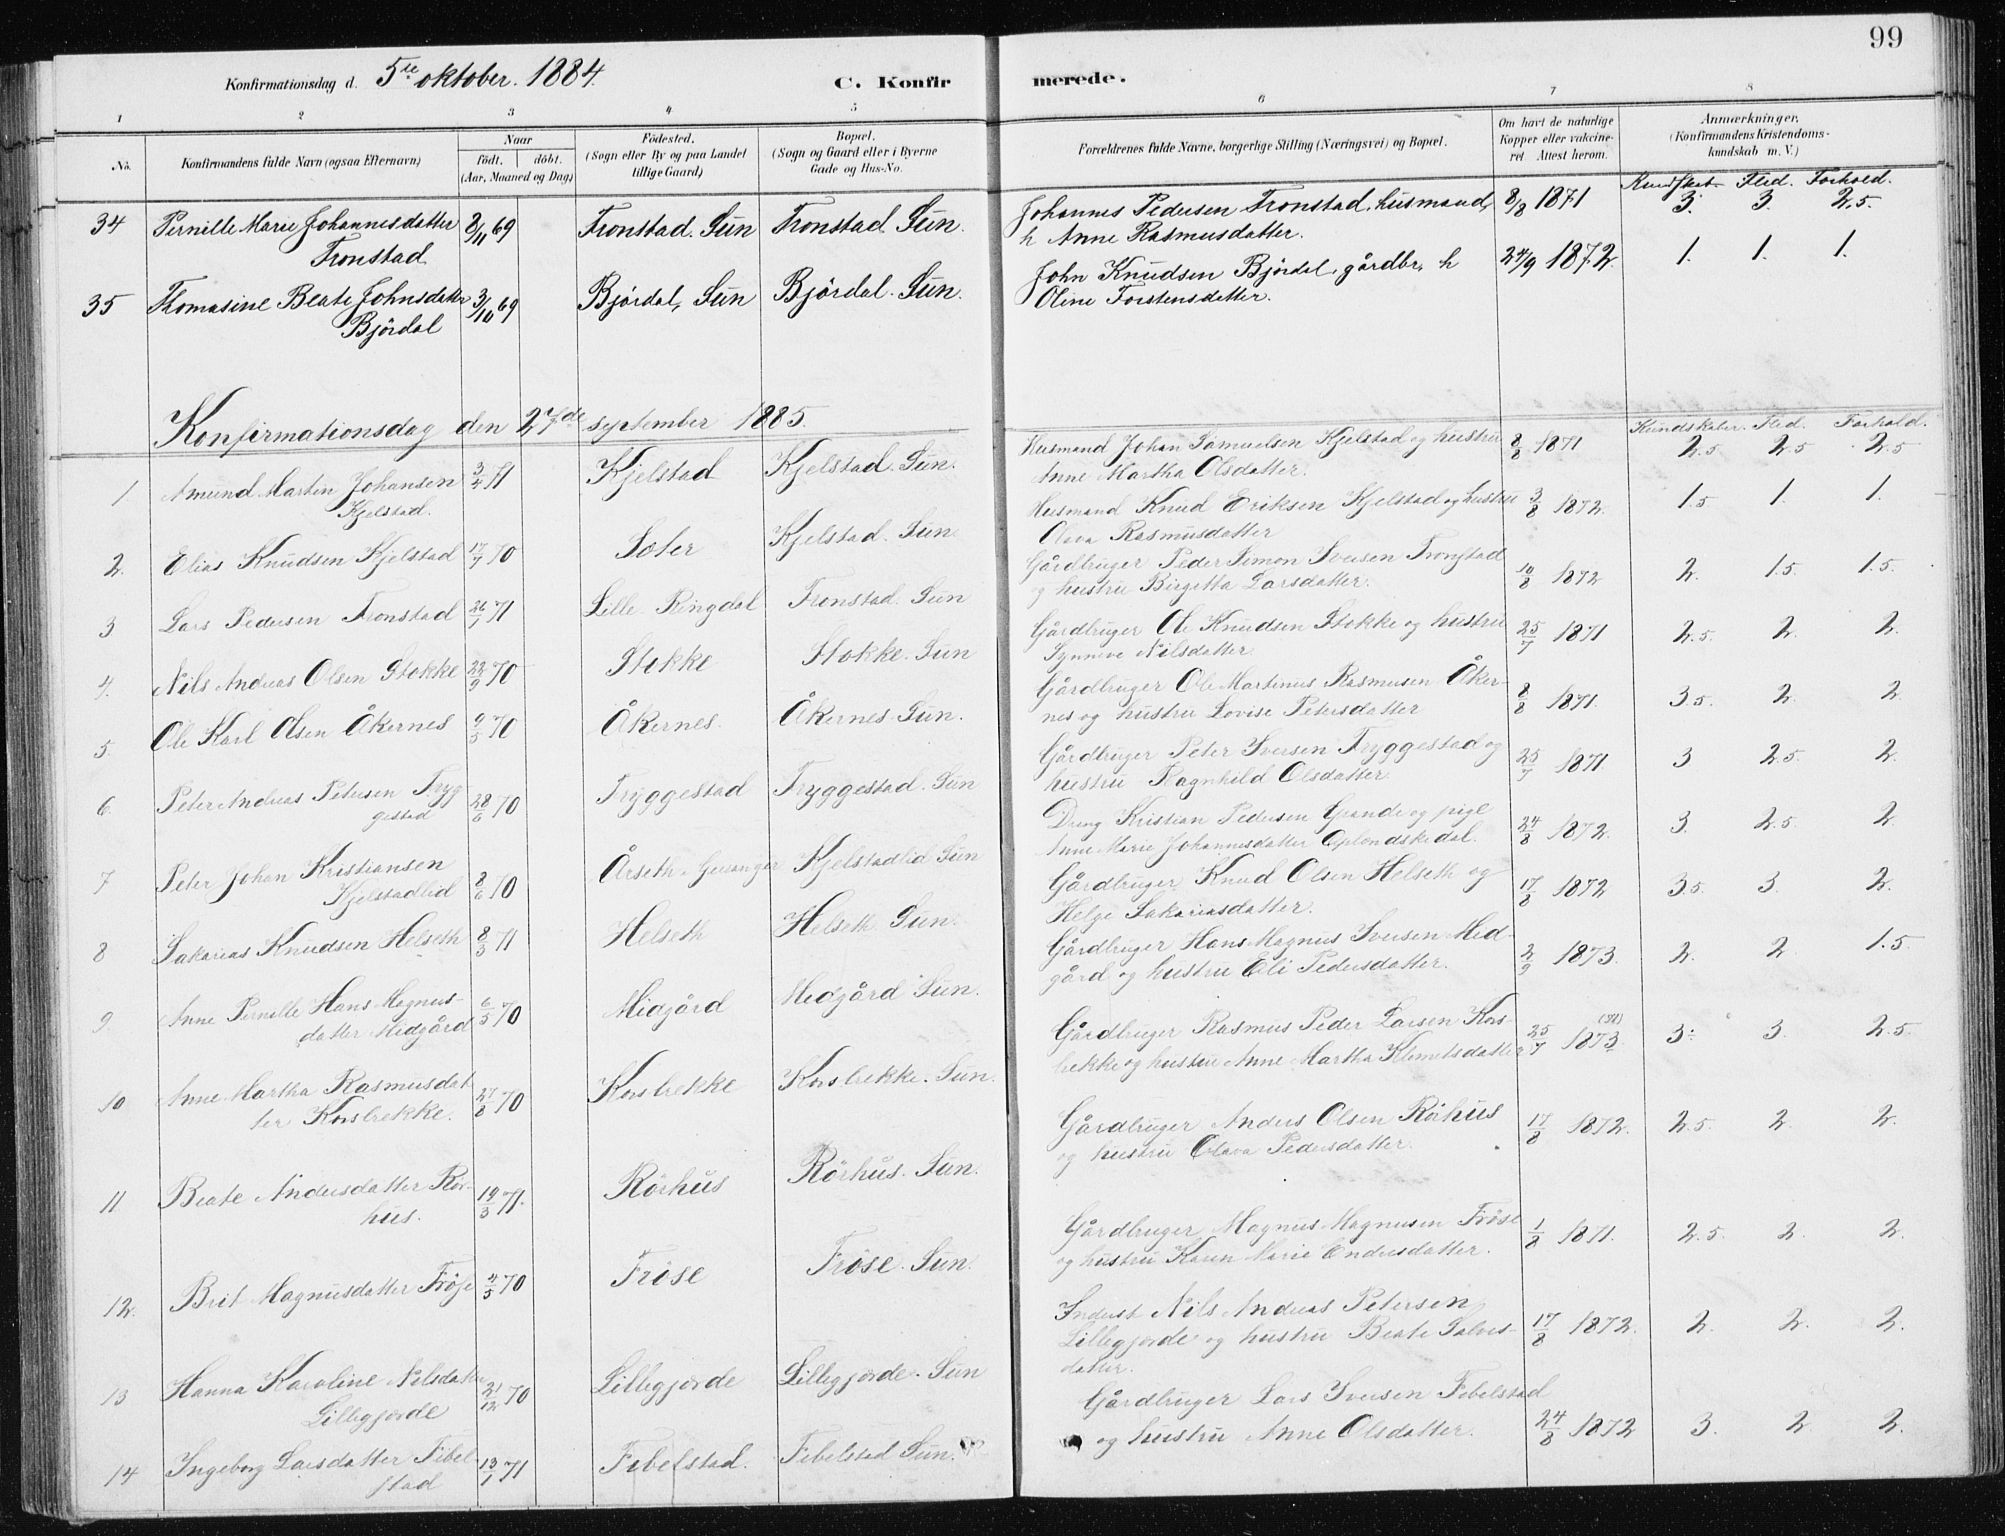 99
Konfirmationsdag d. 5te oktober. 1884.
C. Konfirmerede.
1 2 3 4 5 6 7 8
No.
Konfirmandens fulde Navn (ogsaa Efternavn)
Naar
født. døbt.
(Aar, Maaned og Dag)
Fødested.
(Sogn eller By og paa Landet
tillige Gaard)
Bopæl.
(Sogn og Gaard eller i Byerne
Gade og Hus-No.
Forældrenes fulde Navne, borgerlige Stilling (Næringsvei) og Bopæl.
Om havt de naturlige
Kopper eller vakcine-
ret Attest herom.
Anmærkninger.
(Konfirmandens Kristendoms-
kundskab m. V.)
Kundskab. Flid. Forhold.
34 Pernille Marie Johannesdatter 8/11 69 Tronstad. Sun Tronstad Sun. Johannes Pedersen Tronstad, husmand, 8/8 1871 3. 3. 2.5.
Tronstad h Anne Rasmusdatter.
35 Thomasine Beate Johnsdatter 3/10 69 Bjørdal, Sun Bjørdal. Sun. John Knudsen Bjørdal, gårdbr. h 24/9 1872. 1. 1. 1.
Bjørdal Oline Torstensdatter.
Konfirmationsdag den 27de september 1885.
Kundskaber. Flid. Forhold.
1 Amund Martin Johansen 3/4 71 Kjelstad Kjelstad. Sun. Husmand Johan Samuelsen Kjelstad og hustru 8/8 1871 2.5 2.5 2.5
Kjelstad. Anne Martha Olsdatter.
2. Elias Knudsen Kjelstad 17/7 70 Kjelstad. Sun. Husmand Knud Eriksen Kjelstad og hustru 3/8 1872. 1.5 1. 1.
Olava Rasmusdatter
3 Lars Pedersen Tronstad 26/1 71 Lille Ringdal Tronstad. Sun Gårdbruger Peder Simon Iversen Tronstad 10/8 1872 2. 1.5. 1.5.
og hustru Birgitta Larsdatter.
4. Nils Andreas Olsen Stokke 22/9 70 Stokke Stokke. Sun Gårdbruger Ole Knudsen Stokke og hustru 25/7 1871 2.5. 2. 2.
Synneve Nilsdatter
5. Ole Karl Olsen Åkernes 9/5 70 Åkernes. Åkernes. Sun. Gårdbruger Ole Martinus Rasmusen Åker- 8/8 1871. 3.5. 2. 2.
nes og hustru Lovise Petersdatter
6. Peter Andreas Petersen Tryg 28/6 70 Tryggestad Tryggestad. Sun Gårdbruger Peter Iversen Tryggestad og 25/7 1871. 3 2.5. 2.
gestad hustru Ragnhild Olsdatter.
7 Peter Johan Kristiansen 8/6 70 Årseth. Geiranger Kjelstadlid Sun Dreng Kristian Pedersen Grande og pige 24/8 1872. 3. 2.5. 2.
Kjelstadlid Anne Marie Johannesdatter Oplendskedal.
8 Sakarias Knudsen Helseth 8/3 71 Helseth Helseth. Sun. Gårdbruger Knud Olsen Helseth og 17/8 1872 3.5. 3. 2.
Helge Sakariasdatter.
9. Anne Pernille Hans Magnus- 6/5 70 Midgård Midgård Sun. Gårdbruger Hans Magnus Iversen Mid- 2/9 1873. 2. 2. 1.5.
datter Midgård gård og hustru Eli Pedersdatter.
10 Anne Martha Rasmusdat 27/8 70 Korsbrekke Korsbrekke. Sun. Gårdbruger Rasmus Peder Larsen Kors- 25/7 1873 3. 3. 2.5.
ter Korsbrekke. brekke og hustru Anne Martha Klemetsdatter
11 Beate Andersdatter Rør- 19/3 71. Rørhus Rørhus. Sun. Gårdbruger Anders Olsen Rørhus 17/8 1872. 2.5. 2. 2.
hus. og hustru Olava Pedersdatter.
12. Brit Magnusdatter Frøse 4/5 70 Frøse Frøse. Sun. Gårdbruger Magnus Magnusen Frøse 1/8 1871. 2.5. 2. 2.
og hustru Karen Marie Endresdatter.
13 Hanna Karoline Nilsdatter 21/12 70 Lillegjørde Lillegjørde. Sun Inderst Nils Andreas Petersen 17/8 1872. 2. 2. 2.
Lillegjørde Lillegjørde og hustru Beate Salves-
datter.
14 Ingeborg Larsdatter Fibel 13/1 71 Fibelstad. Fibelstad Sun. Gårdbruger Lars Iversen Fibelstad 24/8 1872 3. 2. 2.
stad og hustru Anne Olsdatter.